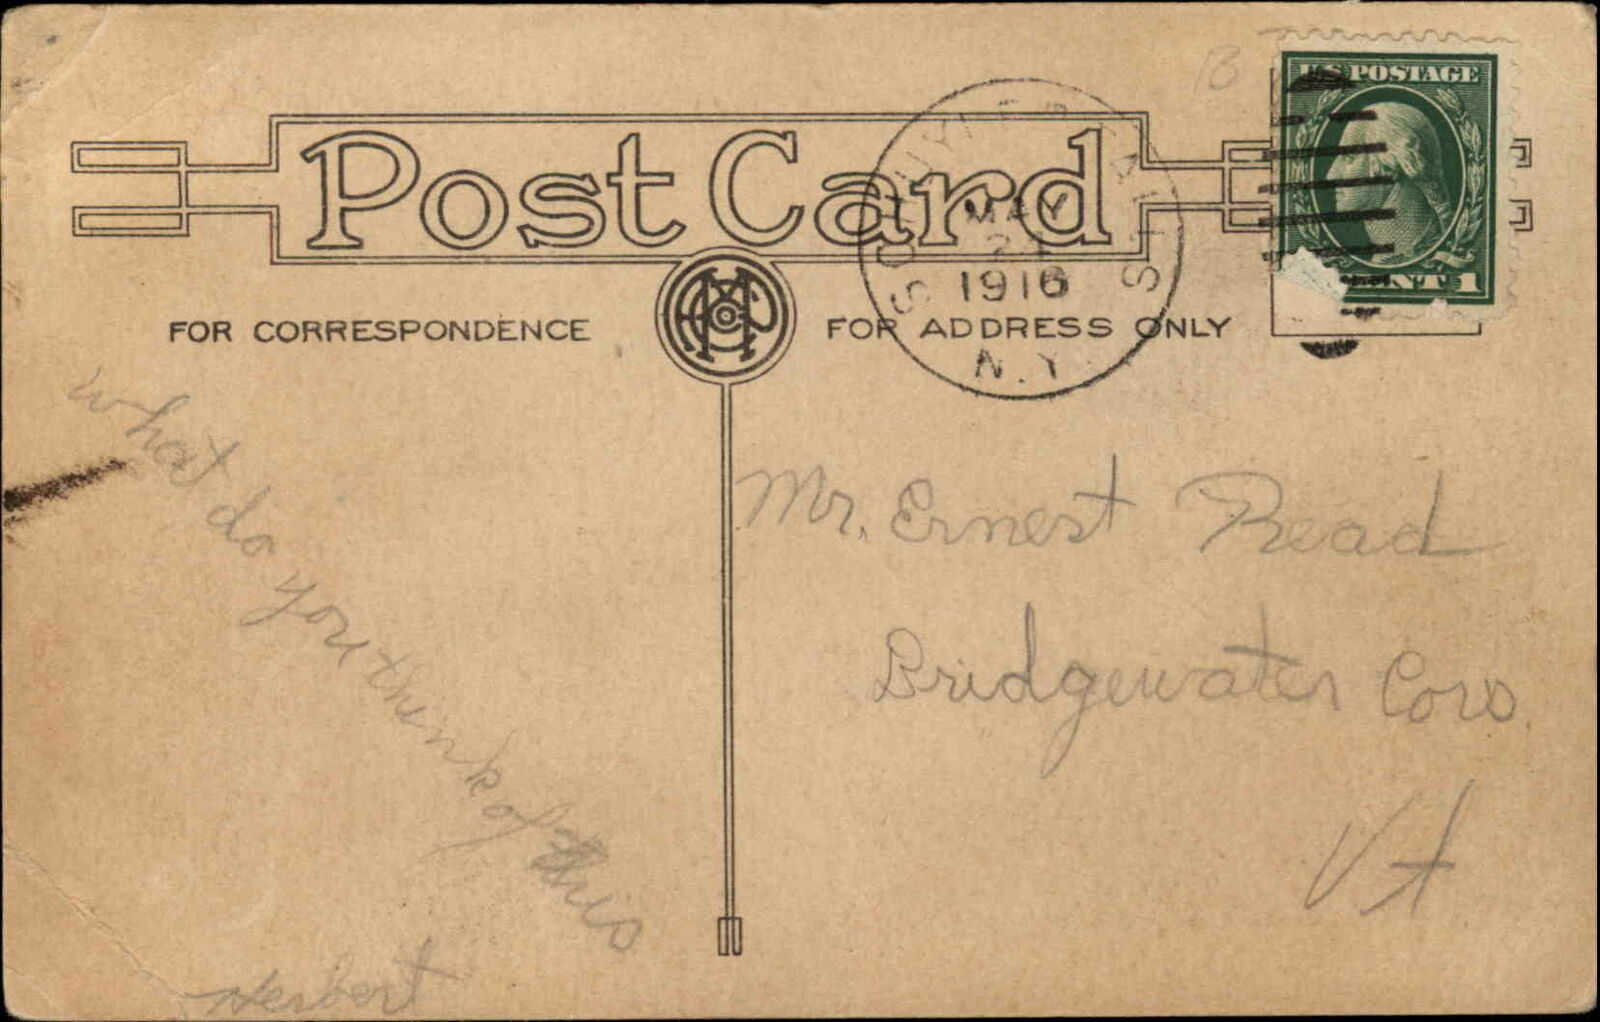 Post Card
FOR CORRESPONDENCE
FOR ADDRESS ONLY
SCHUYLER FALLS
MAY
1916
N.Y.
U.S. POSTAGE
CENT 1
what do you think of this
Herbert
Mr. Ernest Read
Bridgewater Cors.
Vt